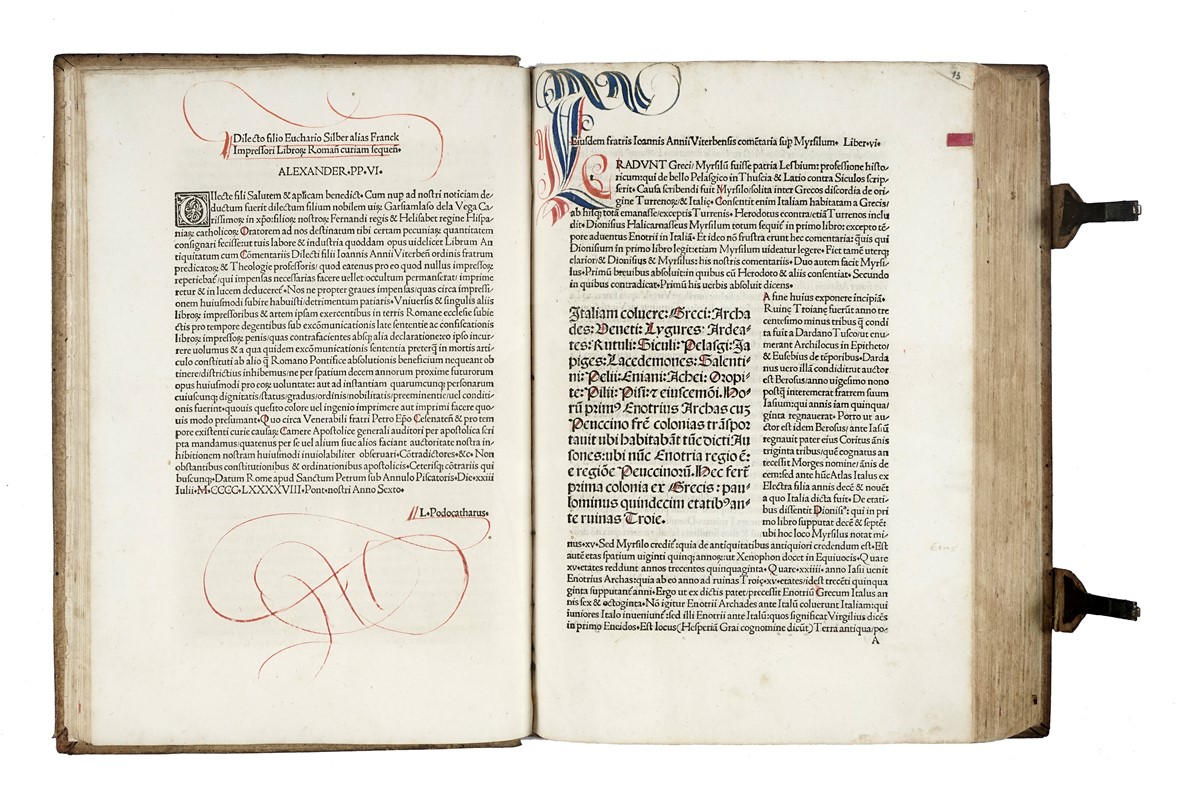 Dilecto filio Euchario Silber alias Franck
Impressori Libroꝝ Romañ curiam sequeñ•
ALEXANDER•PP•VI•
DIlecte fili Salutem & aplicam benedict• Cum nup ad nostri noticiam de/
ductum fuerit dilectum filium nobilem uiꝝ Garsiamlaso dela Vega Ca/
rissimoꝝ in xpo: filioꝝ nostroꝝ Fernandi regis & Helisabet regine Hispa/
niaꝝ catholicoꝝ Oratorem ad nos destinatum tibi certam pecuniaꝝ quantitatem
consignari fecisse: ut tuis labore & industria quoddam opus uidelicet Librum An
tiquitatum cum Cōmentariis Dilecti filii Ioannis Annii Viterbeñ ordinis fratrum
predicatoꝝ & Theologie professoris/ quod eatenus pro eo quod nullus impressoꝝ
reperiebat̃/qui impensas necessarias facere uellet: occultum permanserat/ imprime
retur & in lucem deduceret̃• Nos ne propter graues impensas/quas circa impressi/
onem huiusmodi subire habuisti/detrimentum patiaris• Vniuersis & singulis aliis
libroꝝ impressoribus & artem ipsam exercentibus in terris Romane ecclesie subie
ctis pro tempore degentibus sub excōmunicationis late sententie ac confiscationis
libroꝝ impressoꝝ penis/quas contrafacientes absqꝫ alia declaratione: eo ipso incur/
rere uolumus & a qua quidem excōmunicationis sententia preterqꝫ in mortis arti/
culo constituti ab alio q̃ Romano Pontifice absolutionis beneficium nequeant ob
tinere/districtius inhibemus/ne per spatium decem annorum proxime futurorum
opus huiusmodi pro eoꝝ uoluntate: aut ad instantiam quarumcunqꝫ personarum
cuiuscunqꝫ dignitatis/status/gradus/ordinis/nobilitatis/preeminentie/uel conditi/
onis fuerint•quouis quesito colore uel ingenio imprimere aut imprimi facere quo/
uis modo presumant• Quo circa Venerabili fratri Petro Epō Cesenateñ & pro tem
pore existenti curie causaꝝ Camere Apostolice generali auditori per apostolica scri
pta mandamus/quatenus per se uel alium siue alios faciant auctoritate nostra in/
hibitionem nostram huiusmodi inuiolabiliter obseruari• Cōtradictores•&c• Non
obstantibus constitutionibus & ordinationibus apostolicis• Ceterisqꝫ cōtrariis qui
buscunqꝫ• Datum Rome apud Sanctum Petrum sub Annulo Piscatoris• Die•xxiii
Iulii•M•CCCC•LXXXXVIII•Pont•nostri Anno Sexto•
L•Podocatharus•
13
Eiusdem fratris Ioannis Annii Viterbensis comētaria sup Myrsilum• Liber•vi•
RADVNT Greci/Myrsilū fuisse patria Lesbium: professione histo/
ricum: qui de bello Pelasgico in Thuscia & Latio contra Siculos scrip/
serit• Causa scribendi fuit Myrsilo/solita inter Grecos discordia de ori/
gine Turrenoꝝ/& Italię• Consentit enim Italiam habitatam a Grecis/
ab hisqꝫ totā emanasse/exceptis Turrenis• Herodotus econtra/etiā Turrenos inclu
dit• Dionisius Halicarnaseus Myrsilum totum sequit̃ in primo libro: excepto tē/
pore aduentus Enotrii in Italiā• Et ideo nō frustra erunt hec comentaria: quis qui
Dionisium in primo libro legit: etiam Myrsilum uideatur legere• Fiet tamē uterqꝫ
clarior/& Dionisius & Myrsilus: his nostris comentariis• Duo autem facit Myrsi/
lus• Primū breuibus absoluit: in quibus cū Herodoto & aliis consentiat• Secundo
in quibus contradicat• Primū his uerbis absoluit dicens•
Italiam coluere: Greci: Archa
des: Veneti: Lygures: Ardea/
tes: Rutuli: Siculi: Pelasgi: Ja
piges: Lacedemones: Salenti/
ni: Pelii: Eniani: Achei: Oropi/
te: Pilii: Pisi: ⁊ eiuscemōi. Ho/
rū primꝰ Enotrius Archas cuꝫ
Peuccino frē colonias trāspor
tauit ubi habitabāt tūc dicti Au
sones: ubi nūc Enotria regio ē:
e regiōe Peuccinorū. Hec ferē
prima colonia ex Grecis: pau/
lominus quindecim etatibꝰ an/
te ruinas Troie.
A fine huius exponere incipiā•
Ruinę Troianę fuerūt anno tre
centesimo minus tribus q̃ condi
ta fuit a Dardano Tusco/ut enu/
merant Archilocus in Epitheto/
& Eusebius de tēporibus• Darda
nus uero illā condidit/ut auctor
est Berosus/anno uigesimo nono
postq̃ interemerat fratrem suum
Iasium: qui annis iam quinqua/
ginta regnauerat• Porro ut au/
ctor est idem Berosus/ante Iasiū
regnauit pater eius Coritus ānis
triginta tribus/quē cognatus an
tecessit Morges nomine/ānis de
cem: sed ante hūc Atlas Italus ex
Electra filia annis decē & nouē/
a quo Italia dicta fuit• De etati/
bus dissentit Dionisiꝰ: qui in pri
mo libro supputat decē & septē/
ubi hoc loco Myrsilus notat mi/
nus•xv• Sed Myrsilo credit̃: quia de antiquitatibus antiquiori credendum est• Est
autē etas spatium uiginti quinqꝫ annoꝝ: ut Xenophon docet in Equiuocis• Quare
xv•etates reddunt annos trecentos quinquaginta• Quare•xxiiii•anno Iasii uenit
Enotrius Archas: quia ab eo anno ad ruinas Troię•xv•etates/idest trecēti quinqua
ginta supputant̃ anni• Ergo ut ex dictis patet/precessit Enotriū Grecum Italus an
nis sex & octoginta• Nō igitur Enotrii Archades ante Italū coluerunt Italiam: qui
iuniores Italo inueniunt̃: sed illi Enotrii ante Italū: quos significat Virgilius dicēs
in primo Eneidos• Est locus (Hesperiā Grai cognomine dicūt) Terra antiqua/po/
A